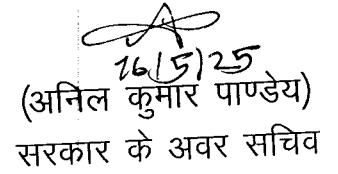 16/5/25
(अनिल कुमार पाण्डेय)
सरकार के अवर सचिव